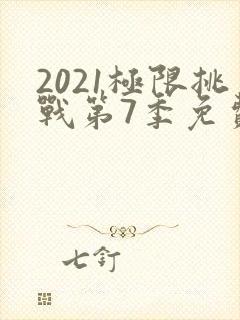 2021極限挑
戰第7季免費
七釘